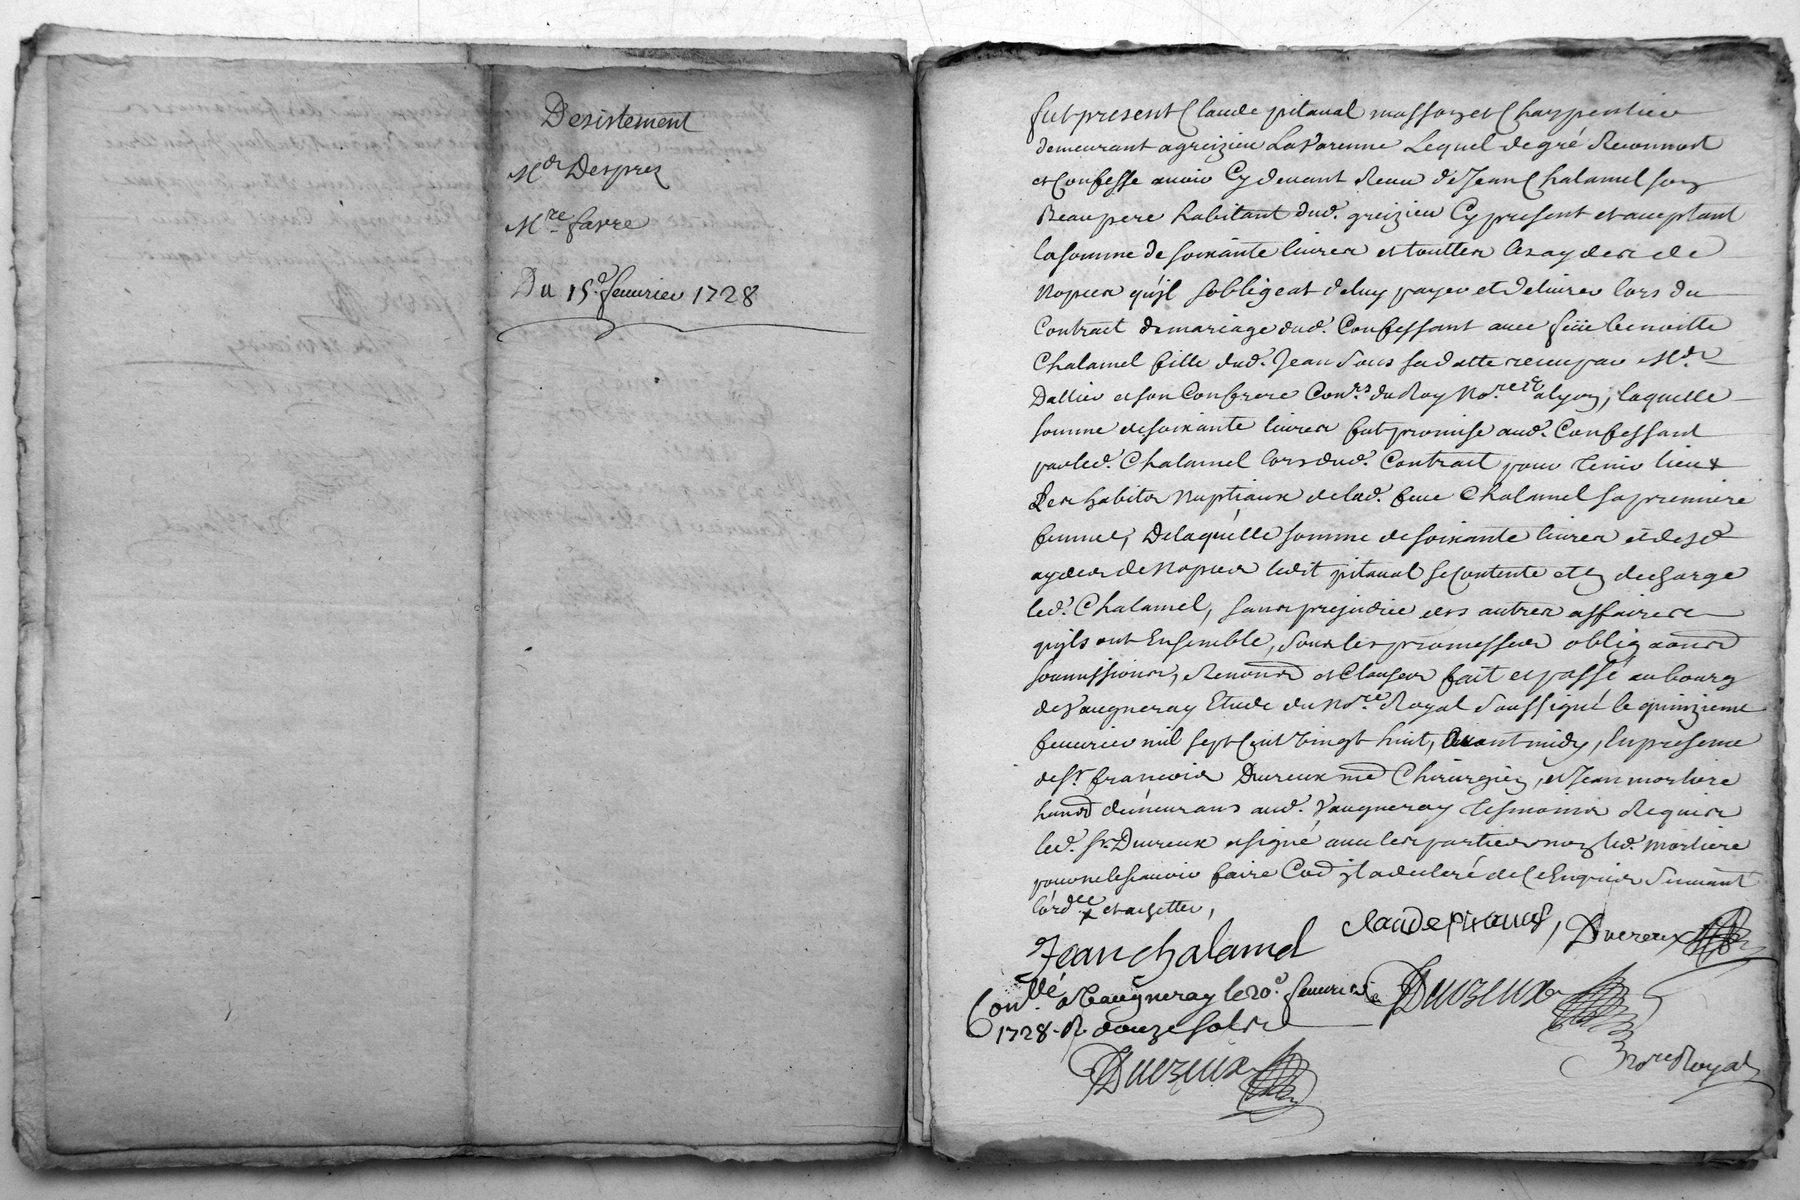 Desistement
Mdr Desprez
Mre favre
Du 15e feuvrier 1728
fut present Claude pitaval masson et Charpentier
demeurant a greizieu La Varenne Lequel de gré Reconnoit
et Confesse avoir Cy devant Receu de Jean Chalamel son
Beaupere habitant dud. greizieu Cy present et acceptant
la somme de soixante livres et touttes les aydes de
Nopces qu'jl s'obligeat de luy payer et delivrer lors du
Contract de mariage dud. Confessant avec feüe benoitte
Chalamel fille dud. Jean sous sa datte receu par Mdr
Dallier et son Confrere Conrs. du Roy Nores a lyon, laquelle
somme de soixante livres fut promise aud. Confessant
par led. Chalamel lors dud. Contract pour tenir lieu
Des habits Nuptiaux de lad. feue Chalamel sa premiere
femme, De laquelle somme de soixante livres et desd.
aydes de Nopces ledit pitaval se Contente et en decharge
led. Chalamel, sans prejudice des autres affaires
qu'jls ont Ensemble, sous les promesses obligaons
soumissions, Renonns et Clauses fait et passé au bourg
de Vaugneray Etude du Nore. Royal soussigné le quinzieme
feuvrier mil sept Cent vingt huit, avant midy, En presence
de sr. francois Ducreux me Chirurgien, et Jean morliere
demeurans aud. Vaugneray tesmoins Requis
led. sr. Ducreux a signé avec les parties non led. morliere
pour ne le scavoir faire Co'd jl a declaré de ce Enquis suivant
l'ordce
Jean chalamel claude pitaval, Ducreux
Conllé a Vaugneray le 20e. feuvrier Ducreux
1728. R. douze sols
Ducreux Nore Royal